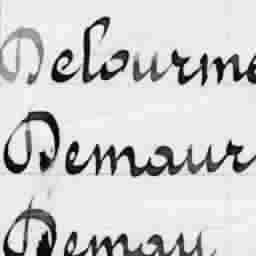 Delourme
Demaur
Demau